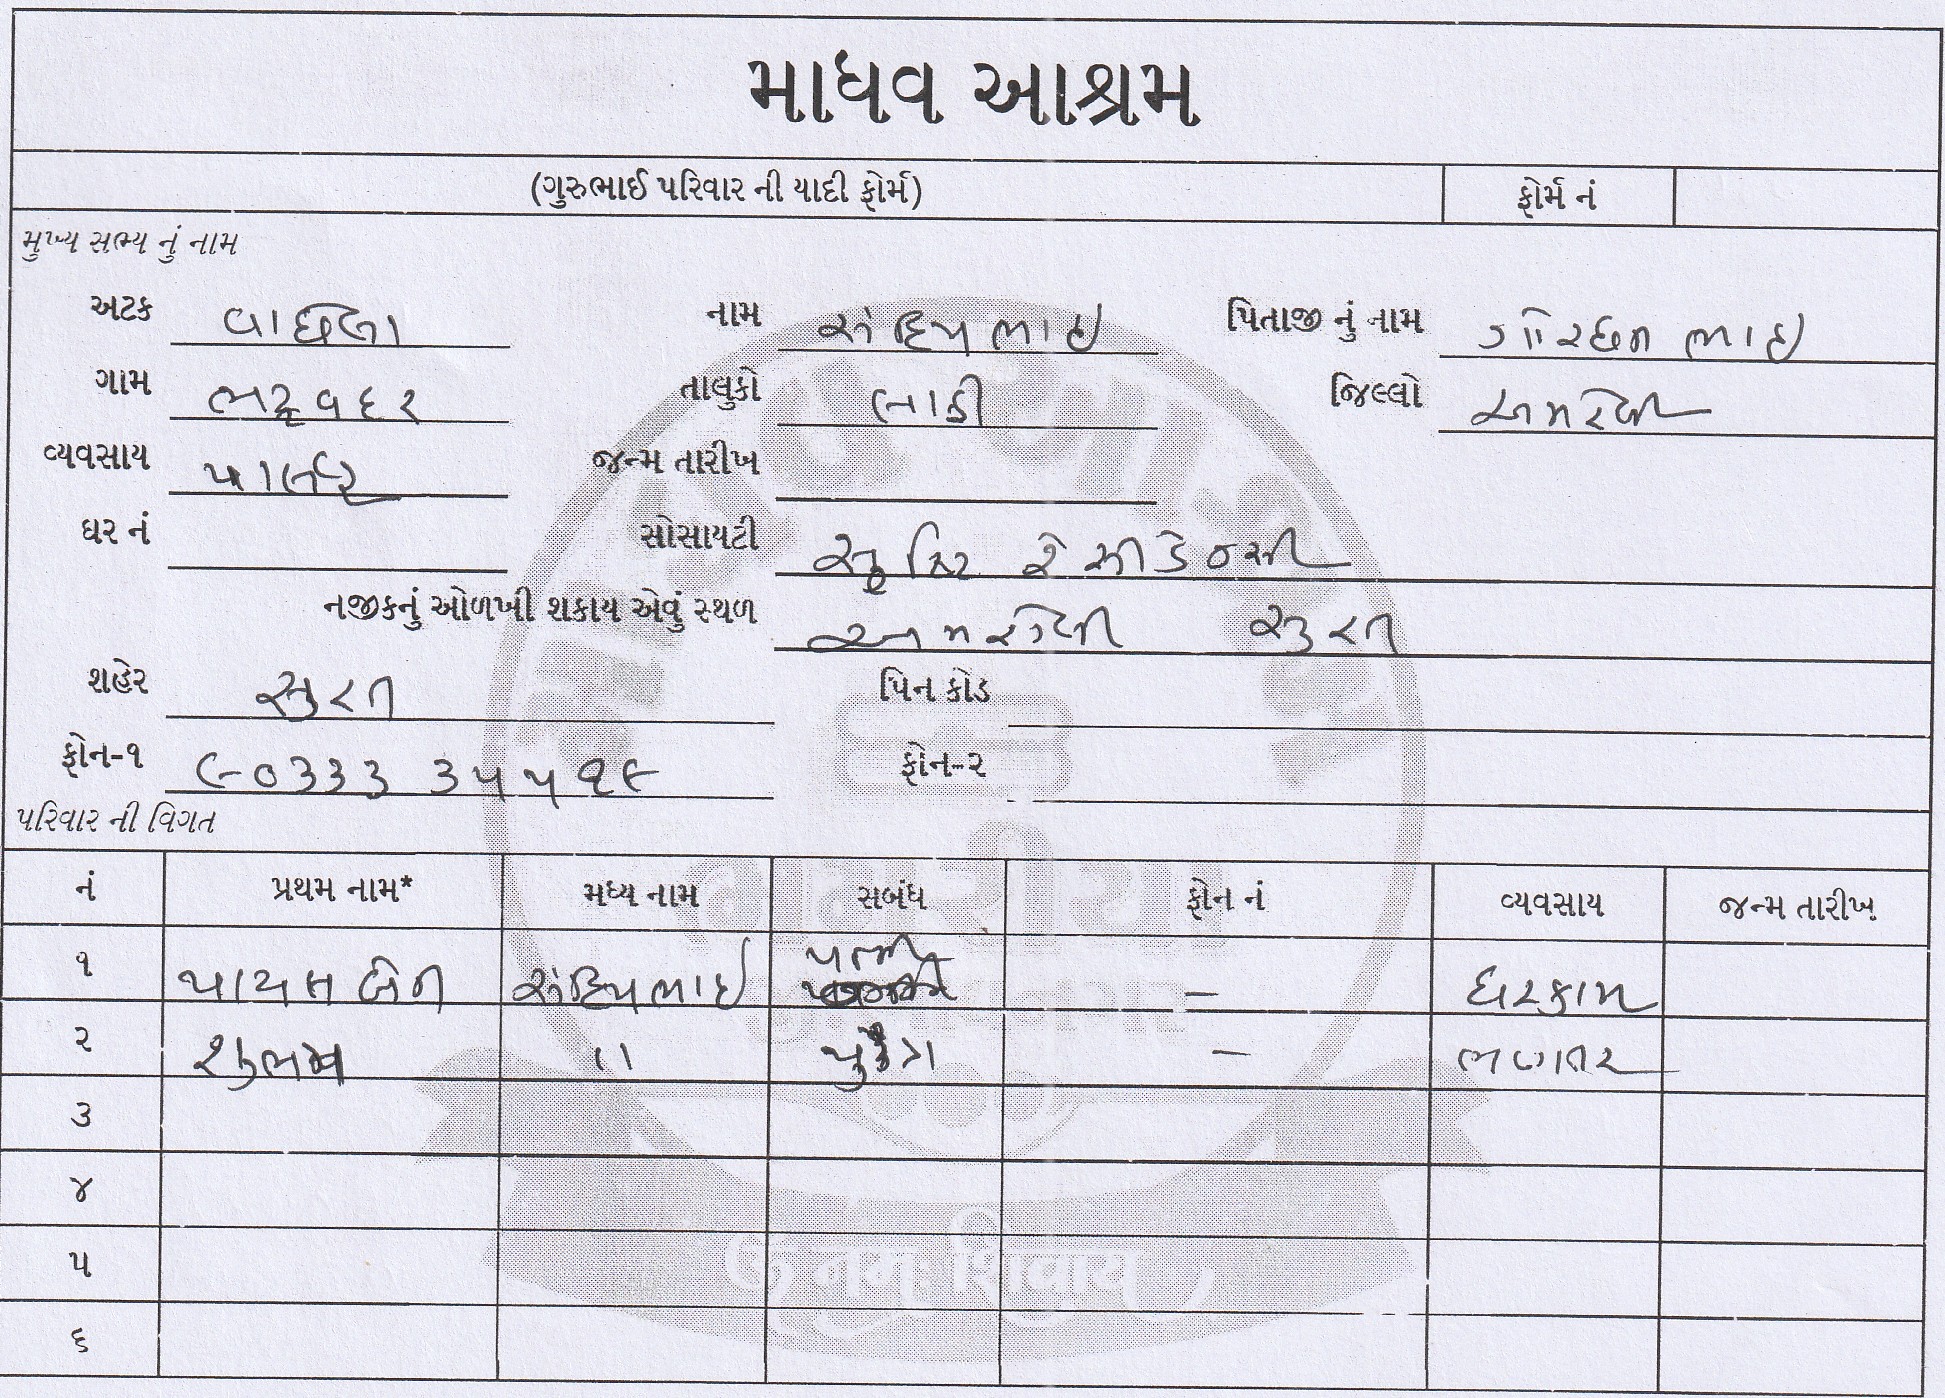 માધવ આશ્રમ
(ગુરુભાઈ પરિવાર ની યાદી ફોર્મ) ફોર્મ નં
મુખ્ય સભ્ય નું નામ
અટક નામ સંદિપભાઇ પિતાજી નું નામ ગોરધન ભાઇ
ગામ ભટ્ટવદર તાલુકો લાઠી જિલ્લો અમરેલી
વ્યવસાય પાર્લર જન્મ તારીખ
ઘર નં સોસાયટી સૃષ્ટિ રેસીડેન્સી
નજીકનું ઓળખી શકાય એવું સ્થળ સુરત
શહેર સુરત પિન કોડ
ફોન-૧ ૯૦૩૩૩ ૩૫૫૧૯ ફોન-૨
પરિવાર ની વિગત
નં પ્રથમ નામ* મધ્ય નામ સબંધ ફોન નં વ્યવસાય જન્મ તારીખ
૧ પાયલ બેન સંદિપભાઇ પત્ની – ઘરકામ
૨ શુભમ " પુત્ર – ભણતર
૩
૪
૫
૬